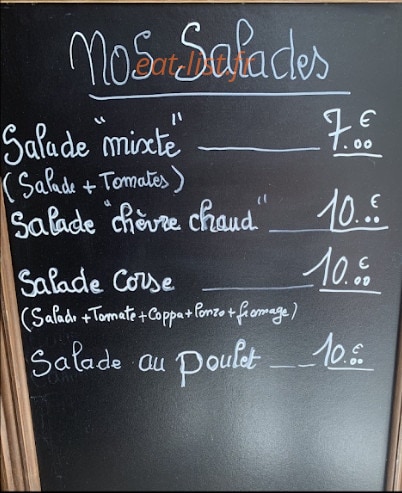 Nos Salades
eat-list.fr
Salade "mixte" 7.€00
(Salade + Tomates)
Salade "chèvre chaud" 10.€00
Salade Corse 10.€00
(Salade + Tomate + Coppa + Lonzo + fromage)
Salade au poulet 10.€00